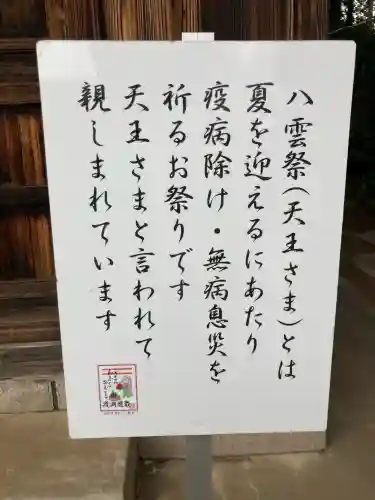 八雲祭(天王さま)とは
夏を迎えるにあたり
疫病除け・無病息災を
祈るお祭りです
天王さまと言われて
親しまれています